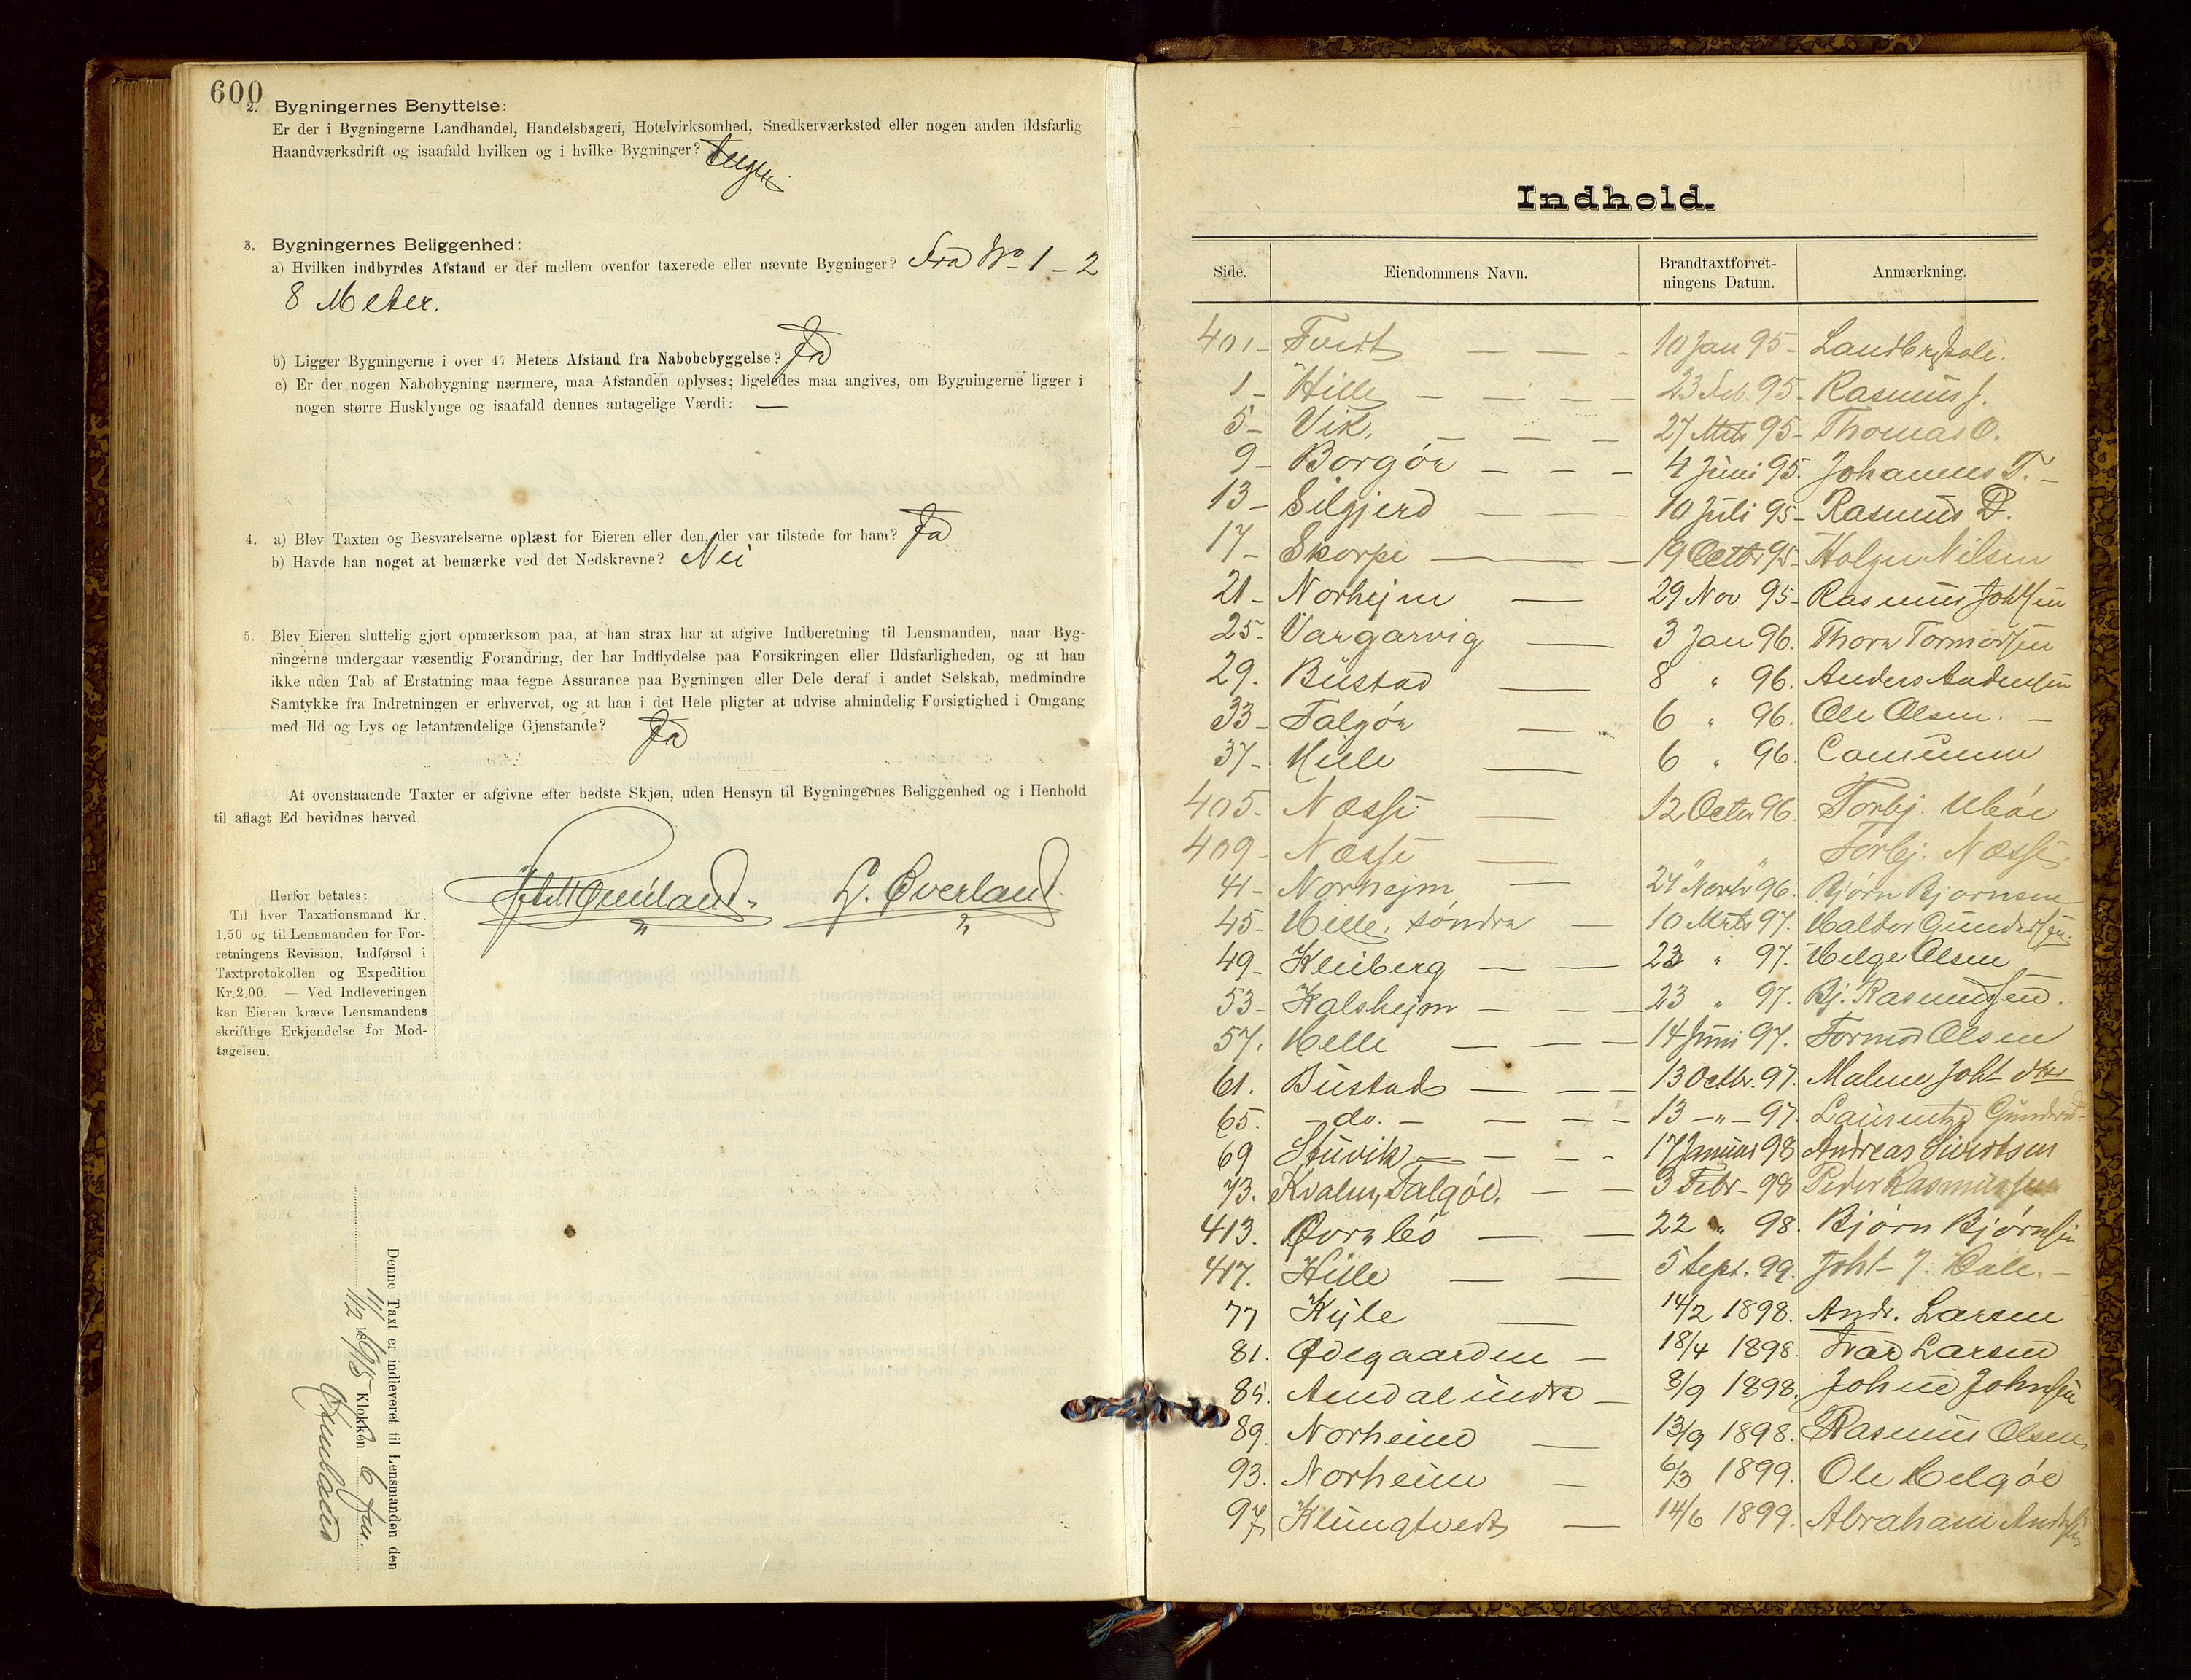 600
2. Bygningernes Benyttelse:
Er der i Bygningerne Landhandel, Handelsbageri, Hotelvirksomhed, Snedkerværksted eller nogen anden ildsfarlig
Haandværksdrift og isaafald hvilken og i hvilke Bygninger?
3. Bygningernes Beliggenhed:
a) Hvilken indbyrdes Afstand er der mellem ovenfor taxerede eller nævnte Bygninger? Fra No 1 - 2
8 Meter.
b) Ligger Bygningerne i over 47 Meters Afstand fra Nabobebyggelse? Ja
c) Er der nogen Nabobygning nærmere, maa Afstanden oplyses; ligeledes maa angives, om Bygningerne ligger i
nogen større Husklynge og isaafald dennes antagelige Værdi: —
4. a) Blev Taxten og Besvarelserne oplæst for Eieren eller den, der var tilstede for ham? Ja
b) Havde han noget at bemærke ved det Nedskrevne? Nei
5. Blev Eieren sluttelig gjort opmærksom paa, at han strax har at afgive Indberetning til Lensmanden, naar Byg-
ningerne undergaar væsentlig Forandring, der har Indflydelse paa Forsikringen eller Ildsfarligheden, og at han
ikke uden Tab af Erstatning maa tegne Assurance paa Bygningen eller Dele deraf i andet Selskab, medmindre
Samtykke fra Indretningen er erhvervet, og at han i det Hele pligter at udvise almindelig Forsigtighed i Omgang
med Ild og Lys og letantændelige Gjenstande? Ja
At ovenstaaende Taxter er afgivne efter bedste Skjøn, uden Hensyn til Bygningernes Beliggenhed og i Henhold
til aflagt Ed bevidnes herved.
L. Øverland
Herfor betales:
Til hver Taxationsmand Kr.
1.50 og til Lensmanden for For-
retningens Revision, Indførsel i
Taxtprotokollen og Expedition
Kr.2.00. — Ved Indleveringen
kan Eieren kræve Lensmandens
skriftlige Erkjendelse for Mod-
tagelsen.
Denne Taxt er indleveret til Lensmanden den
Klokken 6
Indhold.
Side. Eiendommens Navn. Brandtaxtforret-ningens Datum. Anmærkning.
401 - Tvedt — — - 10 Jan 95 -
1 - Hille — — — — 23 Feb. 95 - Rasmus J.
5 - Vik. — — — 27 Mrts 95 - Thomas O.
9 - Borgöe — — — 4 Juni 95. Johannes T. -
13 - Eilgjerd — — — 10 Juli 95 - Rasmus D.
17 - Skorpe — — 19 Octbr 95 - Holger Nilsen
21 - Norhejm — 29 Nov 95 - Rasmus Johssen
25 - Vargarvig — 3 Jan 96. Thore Tormodsen
29. Bustad — 8 " 96. Anders Andersen
33 - Talgöe — 6 " 96. Ole Olsen. -
37 - Hille — 6 " 96.
405. Næsse — 12 Octbr 96. Torbj.
409 - Næsse — " " Torbj. Næsse.
41 - Norhejm — 24 Novbr 96. Bjørn Bjørnsen
45 - Helle, söndre — 10 Mrts 97. Halder Gundersen
49 - Kleiberg — — 23 " 97. Helge Olsen
53 - Halshejm — — — 23 " 97. Bj. Rasmussen.
57. Helle — — — 14 Juni 97. Tormod Olsen
61. Bustad — — — 13 Octbr. 97. Malene Joht dtter
65. - do. - — — — 13 - " - 97.
69 Stuvik — — - - 17 Januar 98 Andreas Sivertsen
73. Kvalen, Talgöe, — — 3 Febr - 98 Peder Rasmussen
413. Øvrebö — — 22 " 98. Bjørn Bjørnsen
417. Hille — — 5 Sept. 99. Joht J.
77 Kyle — 14/2 1898. Andr. Larsen
81. Ødegaarden — 18/4 1898. Ivar Larsen
85. Amdal indre — 8/9 1898. John Johnsen
89. Norheim — 13/9 1898. Rasmus Olsen
93. Norheim — 6/3 1899. Ole Helgöe
97 Klungtvedt — 14/6 1899. Abraham